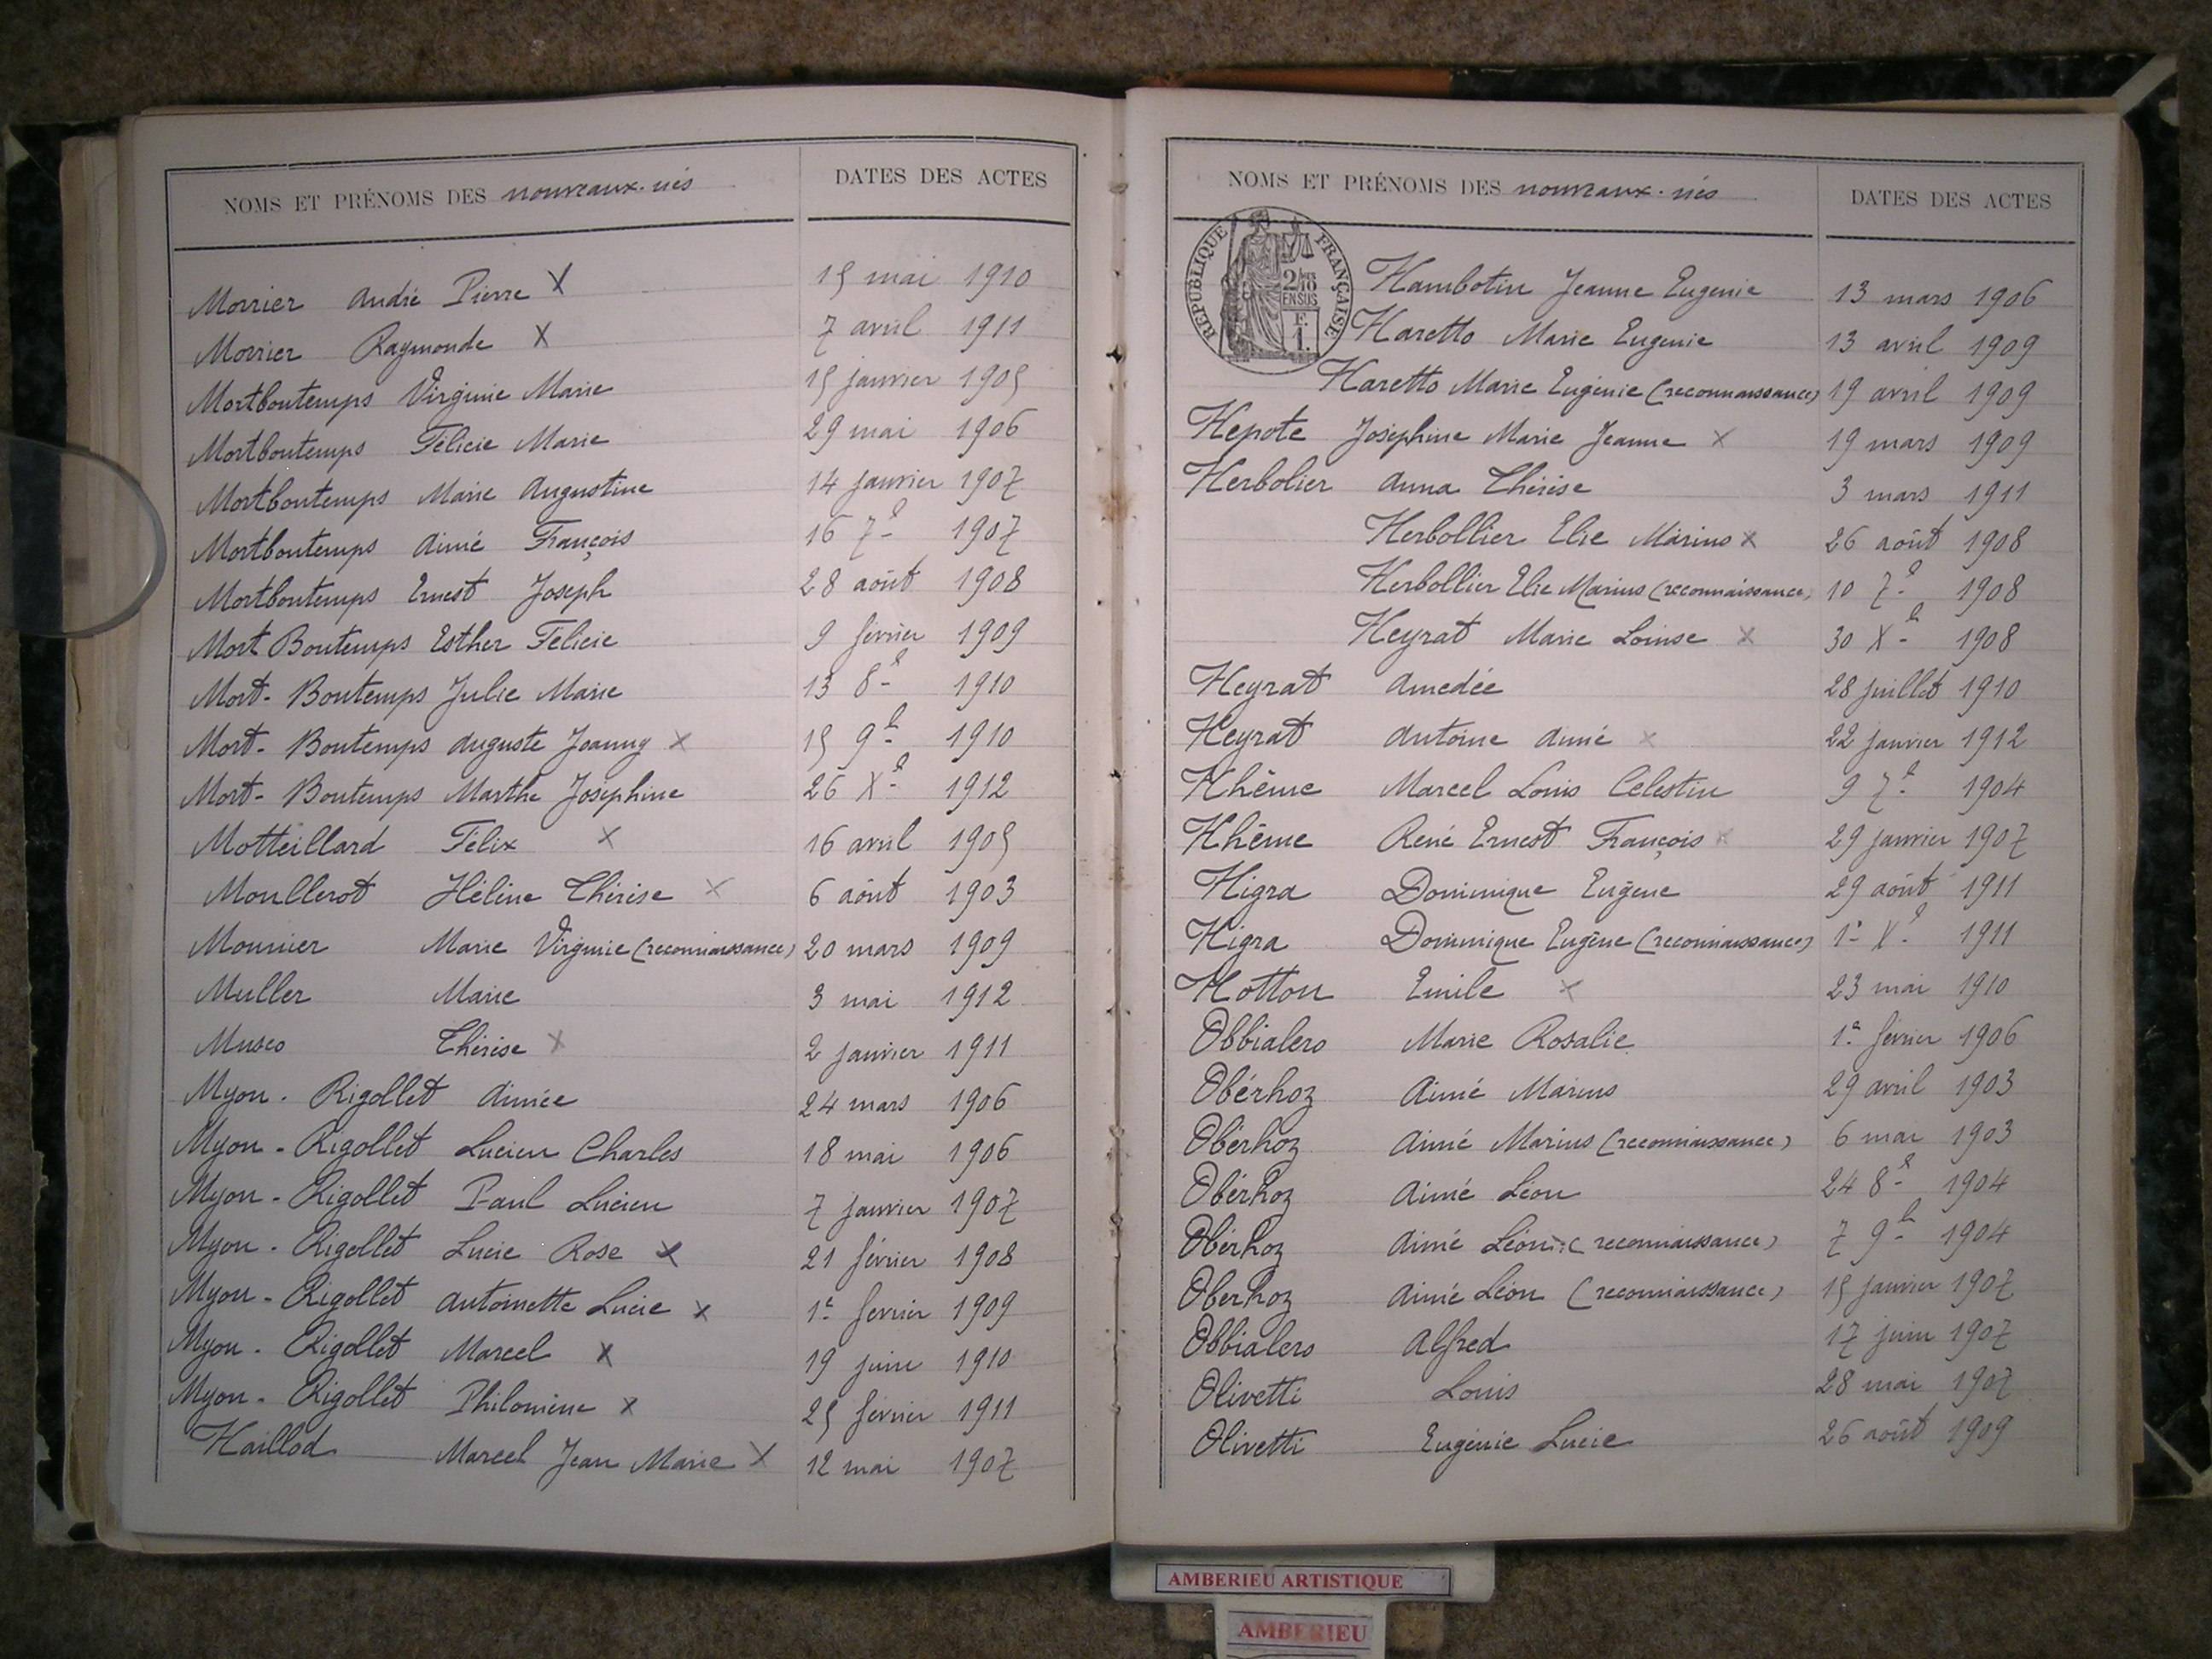 NOMS ET PRÉNOMS DES nouveaux-nés DATES DES ACTES
Morrier André Pierre X 15 mai 1910
Morrier Raymonde X 7 avril 1911
Mortboutemps Virginie Marie 15 janvier 1905
Mortboutemps Félicie Marie 29 mai 1906
Mortboutemps Marie Augustine 14 janvier 1907
Mortboutemps Aimé François 16 7e 1907
Mortboutemps Ernest Joseph 28 août 1908
Mort Boutemps Esther Félicie 9 février 1909
Mort-Boutemps Julie Marie 13 8e 1910
Mort-Boutemps Auguste Joanny X 15 9e 1910
Mort-Boutemps Marthe Joséphine 26 Xe 1912
Motteillard Félix X 16 avril 1905
Moullerot Hélène Thérèse X 6 août 1903
Mounier Marie Virginie (reconnaissance) 20 mars 1909
Muller Marie 3 mai 1912
Museo Thérèse X 2 janvier 1911
Myon-Rigollet Aimée 24 mars 1906
Myon-Rigollet Lucien Charles 18 mai 1906
Myon-Rigollet Paul Lucien 7 janvier 1907
Myon-Rigollet Lucie Rose X 21 février 1908
Myon-Rigollet Antoinette Lucie X 1er février 1909
Myon-Rigollet Marcel X 19 juin 1910
Myon-Rigollet Philomène X 25 février 1911
Naillod Marcel Jean Marie X 12 mai 1907
NOMS ET PRÉNOMS DES nouveaux-nés DATES DES ACTES
RÉPUBLIQUE FRANÇAISE
2/10 EN SUS
F. 1.
Nambotin Jeanne Eugénie 13 mars 1906
Naretto Marie Eugénie 13 avril 1909
Naretto Marie Eugénie (reconnaissance) 19 avril 1909
Nepote Joséphine Marie Jeanne X 19 mars 1909
Nerbolier Anna Thérèse 3 mars 1911
Nerbollier Elie Marius X 26 août 1908
Nerbollier Elie Marius (reconnaissance) 10 7e 1908
Neyrat Marie Louise X 30 Xe 1908
Neyrat Amedée 28 juillet 1910
Neyrat Antoine Aimé X 22 janvier 1912
Nhême Marcel Louis Célestin 9 7e 1904
Nhême René Ernest François X 29 janvier 1907
Nigra Dominique Eugène 29 août 1911
Nigra Dominique Eugène (reconnaissance) 1er Xe 1911
Notton Emile X 23 mai 1910
Obbialero Marie Rosalie 1er février 1906
Obérhoz Aimé Marius 29 avril 1903
Obérhoz Aimé Marius (reconnaissance) 6 mai 1903
Obérhoz Aimé Léon 24 8e 1904
Obérhoz Aimé Léon (reconnaissance) 7 9e 1904
Obérhoz Aimé Léon (reconnaissance) 15 janvier 1907
Obbialero Alfred 17 juin 1907
Olivetti Louis 28 mai 1907
Olivetti Eugénie Lucie 26 août 1909
AMBERIEU ARTISTIQUE
AMBERIEU